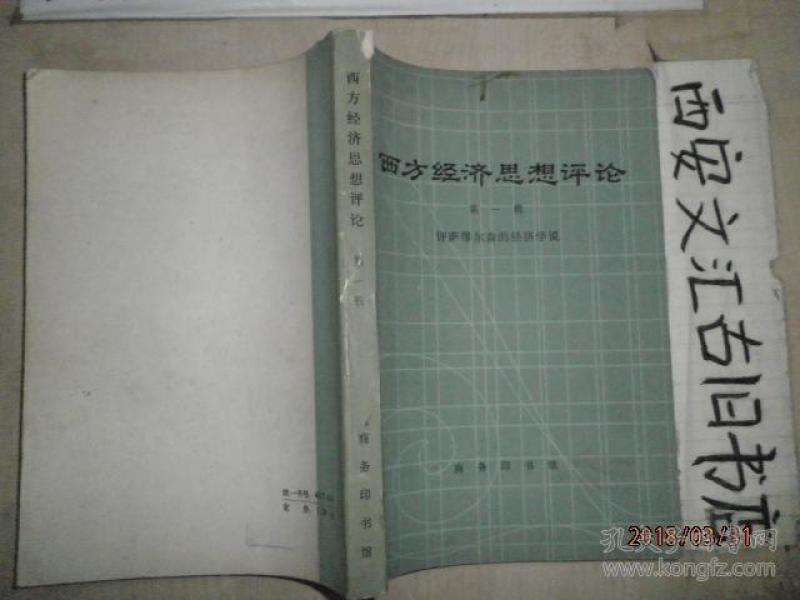 西方经济思想评论
第一辑
评萨缪尔森的经济学说
商务印书馆
西方经济思想评论 第一辑
商务印书馆
统一书号:
定价:
西安文汇古旧书店
2018/03/31
孔夫子旧书网
www.kongfz.com